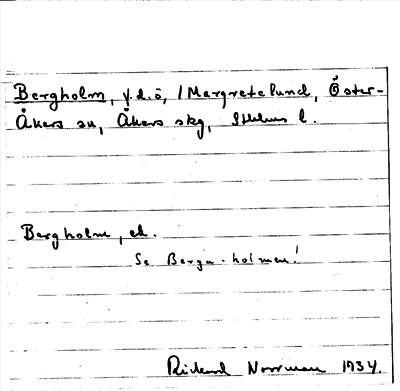 Bergholm, f.d. ö, /Margretelund, Öster-
Åkers sn, Åkers skg, Sthlms l.
Bergholm, ek.
Se Berga-holmen!
Rickard Norrman 1934.